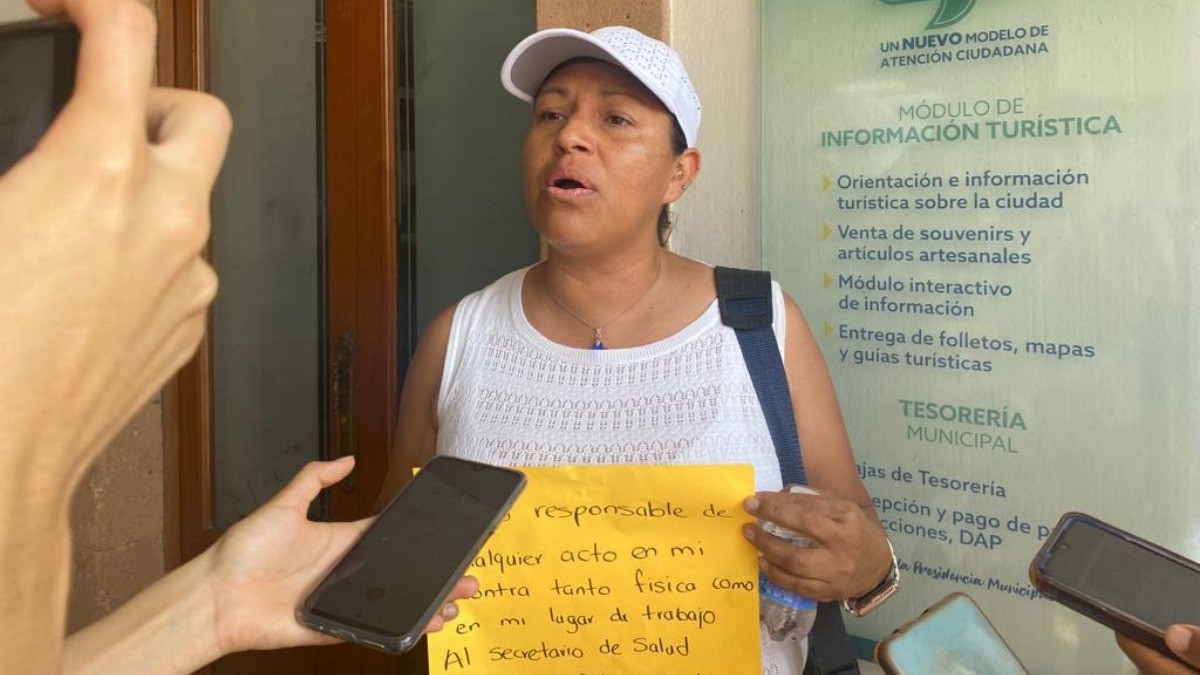 UN NUEVO MODELO DE
ATENCIÓN CIUDADANA
MÓDULO DE
INFORMACIÓN TURÍSTICA
Orientación e información
turística sobre la ciudad
Venta de souvenirs y
artículos artesanales
Módulo interactivo
de información
Entrega de folletos, mapas
y guías turísticas
TESORERÍA
MUNICIPAL
ajas de Tesorería
epción y pago de p
cciones, DAP
la Presidencia Municip
responsable de
alquier acto en mi
ontra tanto fisica como
en mi lugar de trabajo
Al secretario de Salud